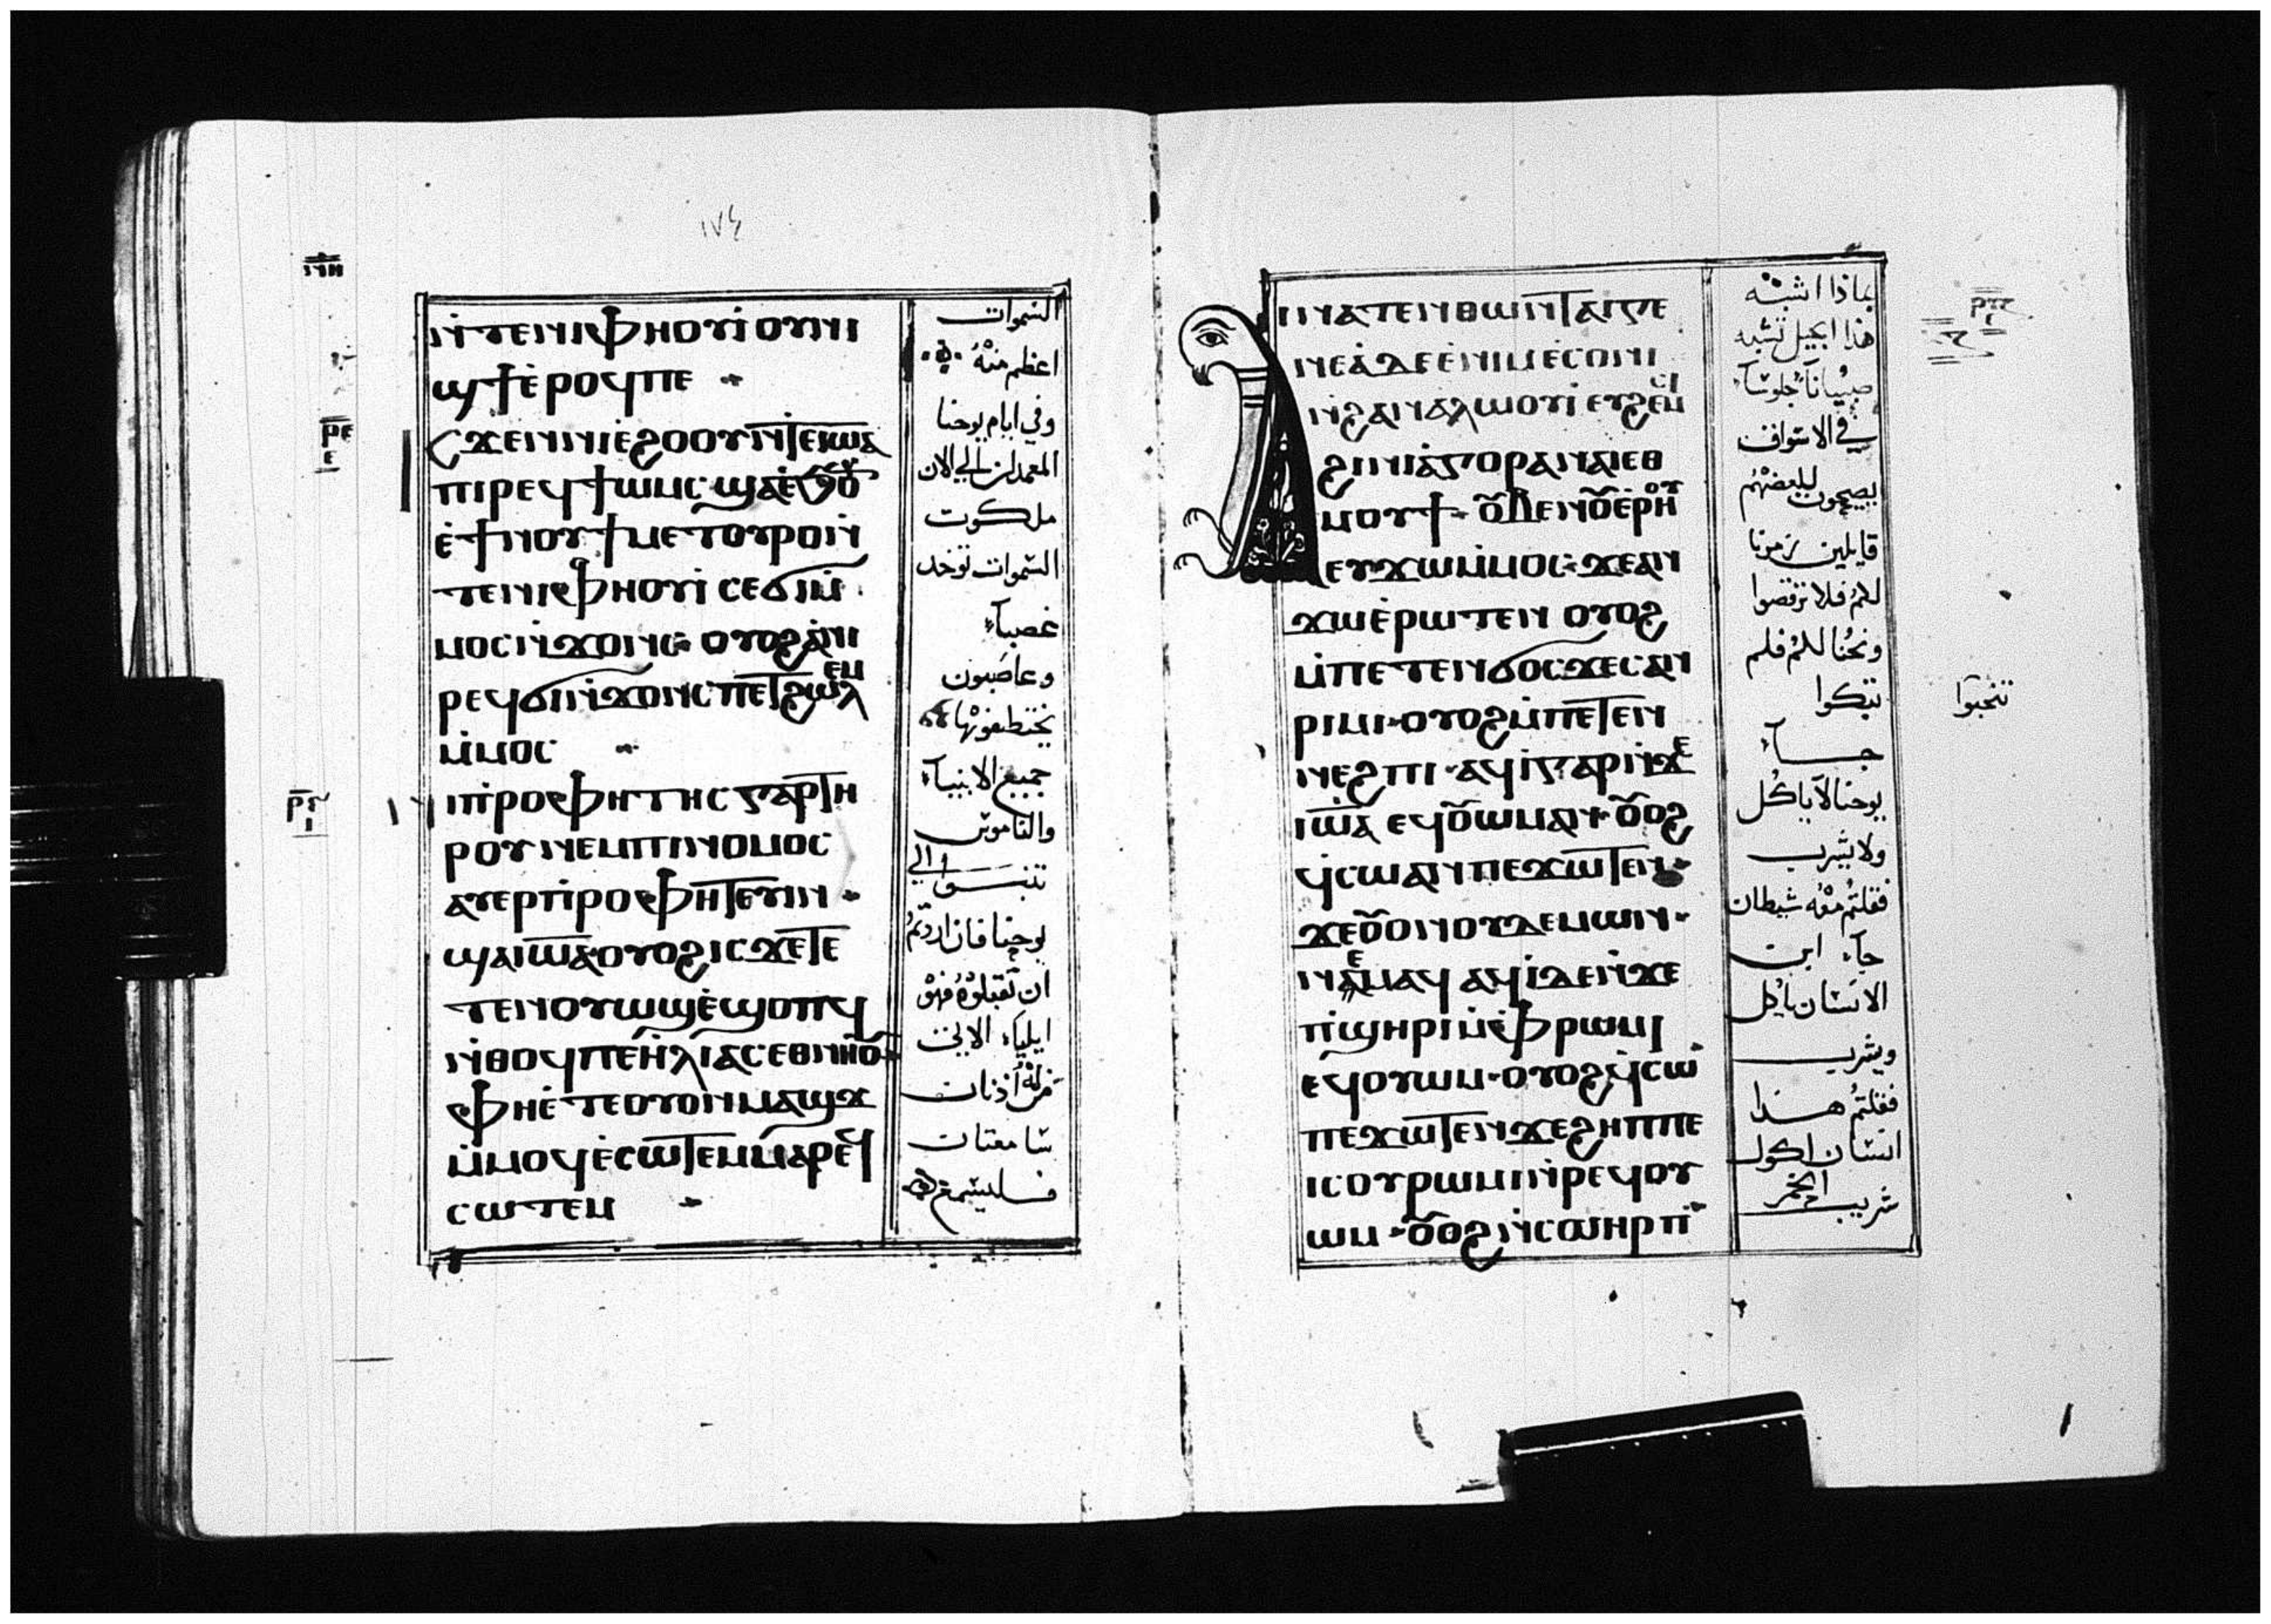 ١٧٤
ⲛ̀ⲧⲉⲛⲓⲫⲏⲟⲩⲓ̀ ⲟⲩⲛⲓ
ϣϯ ⲉ̀ⲣⲟϥⲡⲉ
ⲥϫⲉⲛⲛⲓⲉ̀ϩⲟⲟⲩ ⲛ̀ⲧⲉⲓⲱⲁ
ⲡⲓⲣⲉϥϯⲱⲙⲥ ϣⲁⲉ̀
ⲉ̀ϯⲛⲟⲩ ϯⲙⲉⲧⲟⲩⲣⲟ ⲛ̀
ⲧⲉⲛⲓⲫⲏⲟⲩⲓ̀ ⲥⲉϭⲓ ⲙ̀
ⲙⲟⲥ ⲛ̀ϫⲟⲛⲥ ⲟⲩⲟϩ ϩⲁⲛ
ⲣⲉϥϭⲓⲛ̀ϫⲟⲛⲥ ⲡⲉⲧϩⲱⲗⲉⲙ
ⲙ̀ⲙⲟⲥ
ⲛⲓⲡⲣⲟⲫⲏⲧⲏⲥ ⲅⲁⲣ ⲧⲏ
ⲣⲟⲩ ⲛⲉⲙⲡⲓⲛⲟⲙⲟⲥ
ⲁⲩⲉⲣⲡⲣⲟⲫⲏⲧⲉⲩⲓⲛ
ϣⲁⲓⲱⲁ ⲟⲩⲟϩ ⲓⲥϫⲉ ⲧⲉ
ⲧⲉⲛⲟⲩⲱϣ ⲉ̀ϣⲟⲡϥ
ⲛ̀ⲑⲟϥⲡⲉ ⲏⲗⲓⲁⲥ ⲉⲑⲛⲏⲟⲩ
ⲫⲏⲉ̀ⲧⲉⲟⲩⲟⲛⲙⲁϣϫ
ⲙ̀ⲙⲟϥ ⲉ̀ⲥⲱⲧⲉⲙ ⲙⲁⲣⲉϥ
ⲥⲱⲧⲉⲙ
السموات
اعظم منه
وفي ايام يوحنا
المعمدان الي الان
ملكوت
السموات توخد
غصباً
وغاصبون
يختطفونها
جميع الانبياء
والناموس
تنبت الي
يوحنا فان اردتم
ان تقبلوه فهو
ايلياء الاتي
من له اذنان
سامعتان
فليسمع
ⲓⲛⲁⲧⲉⲛⲑⲱⲛ ⲧⲁⲓⲅⲉ
ⲛⲉⲁ̀ ⲇⲉ ⲉ̀ⲛⲓⲙ ⲉⲥⲟⲛⲓ
ⲛ̀ϩⲁⲛⲁ̀ⲗⲱⲟⲩⲓ̀ ⲉⲩϩⲉⲙⲥⲓ
ϩⲓⲛⲓⲁ̀ⲅⲟⲣⲁ ⲛⲁⲓ ⲉⲑ
ⲙⲟⲩϯ ⲟⲩⲃⲉⲛⲟⲩⲉ̀ⲣⲏⲟⲩ
ⲉⲩϫⲱⲙ̀ⲙⲟⲥ ϫⲉⲁⲛ
ϫⲱ ⲉ̀ⲣⲱⲧⲉⲛ ⲟⲩⲟϩ
ⲙ̀ⲡⲉⲧⲉⲛϭⲟⲥϫⲉⲥ ⲁⲛ
ⲣⲓⲙⲓ ⲟⲩⲟϩ ⲙ̀ⲡⲉⲧⲉⲛ
ⲛⲉϩⲡⲓ ⲁϥⲓ̀ ⲅⲁⲣ ⲛ̀ϫⲉ
ⲓⲱⲁ ⲉϥⲟⲩⲱⲙ ⲁⲛ ⲟⲩⲟϩ
ϥⲥⲱ ⲁⲛ ⲡⲉϫⲱⲧⲉⲛ
ϫⲉ ⲟⲩⲟⲛ ⲟⲩⲇⲉⲙⲱⲛ
ⲛⲉⲙⲁϥ ⲁϥⲓ̀ ⲇⲉ ⲛ̀ϫⲉ
ⲡ̀ϣⲏⲣⲓ ⲙ̀ⲫⲣⲱⲙⲓ
ⲉϥⲟⲩⲱⲙ ⲟⲩⲟϩ ϥⲥⲱ
ⲡⲉϫⲱⲧⲉⲛ ϫⲉϩⲏⲡⲡⲉ
ⲓⲥ ⲟⲩⲣⲱⲙⲓ ⲛ̀ⲣⲉϥⲟⲩ
ⲱⲙ ⲟⲩⲟϩ ⲛ̀ⲥⲁⲩⲏⲣⲡ
بماذا اشبه
هذا الجيل تشبه
صبياناً جلوساً
في الاسواق
يصيحون لبعضهم
قايلين زمرنا
لكم فلم ترقصوا
ونحنا لكم فلم
تبكوا
جاء
يوحنا لا ياكل
ولا يشرب
فقلتم معه شيطان
جاء ابن
الانسان ياكل
ويشرب
فقلتم هذا
انسان اكول
شريب الخمر